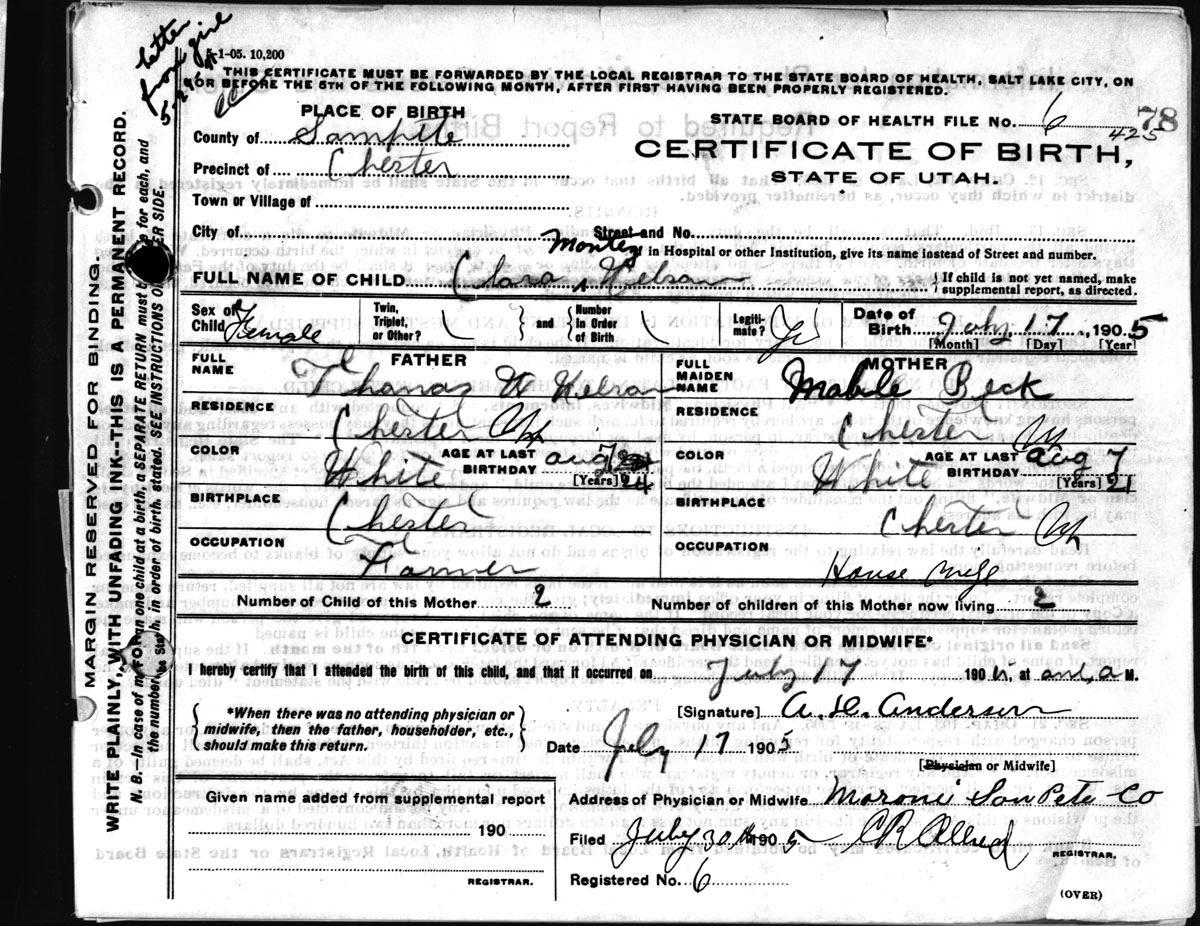 letter
from girl
5-1-05. 10,200
THIS CERTIFICATE MUST BE FORWARDED BY THE LOCAL REGISTRAR TO THE STATE BOARD OF HEALTH, SALT LAKE CITY, ON
OR BEFORE THE 5TH OF THE FOLLOWING MONTH, AFTER FIRST HAVING BEEN PROPERLY REGISTERED.
PLACE OF BIRTH
STATE BOARD OF HEALTH FILE NO. 6
78
425
County of Sampete
CERTIFICATE OF BIRTH,
Precinct of Chester
STATE OF UTAH.
Town or Village of
City of
Street and No.
If in Hospital or other Institution, give its name instead of Street and number.
Montez
FULL NAME OF CHILD Clara Nelson
If child is not yet named, make
supplemental report, as directed.
Sex of Child Female
Twin, Triplet, or Other?
and
Number in Order of Birth
Legiti-mate?
Date of Birth July 17, 1905
[Month] [Day] [Year]
FATHER
MOTHER
FULL NAME Thomas W Nelson
FULL MAIDEN NAME Mabile Beck
RESIDENCE
RESIDENCE
Chester
Chester
COLOR
AGE AT LAST BIRTHDAY aug
24
[Years]
COLOR
AGE AT LAST BIRTHDAY aug 7
21
[Years]
White
White
BIRTHPLACE
BIRTHPLACE
Chester
Chester
OCCUPATION
OCCUPATION
Farmer
House Wife
Number of Child of this Mother 2
Number of children of this Mother now living 2
CERTIFICATE OF ATTENDING PHYSICIAN OR MIDWIFE*
I hereby certify that I attended the birth of this child, and that it occurred on July 17 190 , at one, a M.
*When there was no attending physician or
midwife, then the father, householder, etc.,
should make this return.
[Signature] A. H. Anderson
Date July 17 1905
[Physician or Midwife]
Given name added from supplemental report
Address of Physician or Midwife Moroni San Pete Co
190
Filed July 30th 1905 CR Allred
REGISTRAR.
REGISTRAR.
Registered No. 6
(OVER)
MARGIN RESERVED FOR BINDING.
WRITE PLAINLY, WITH UNFADING INK—THIS IS A PERMANENT RECORD.
N. B.—In case of more than one child at a birth, a SEPARATE RETURN must be made for each, and
the number of each, in order of birth stated. SEE INSTRUCTIONS ON OTHER SIDE.